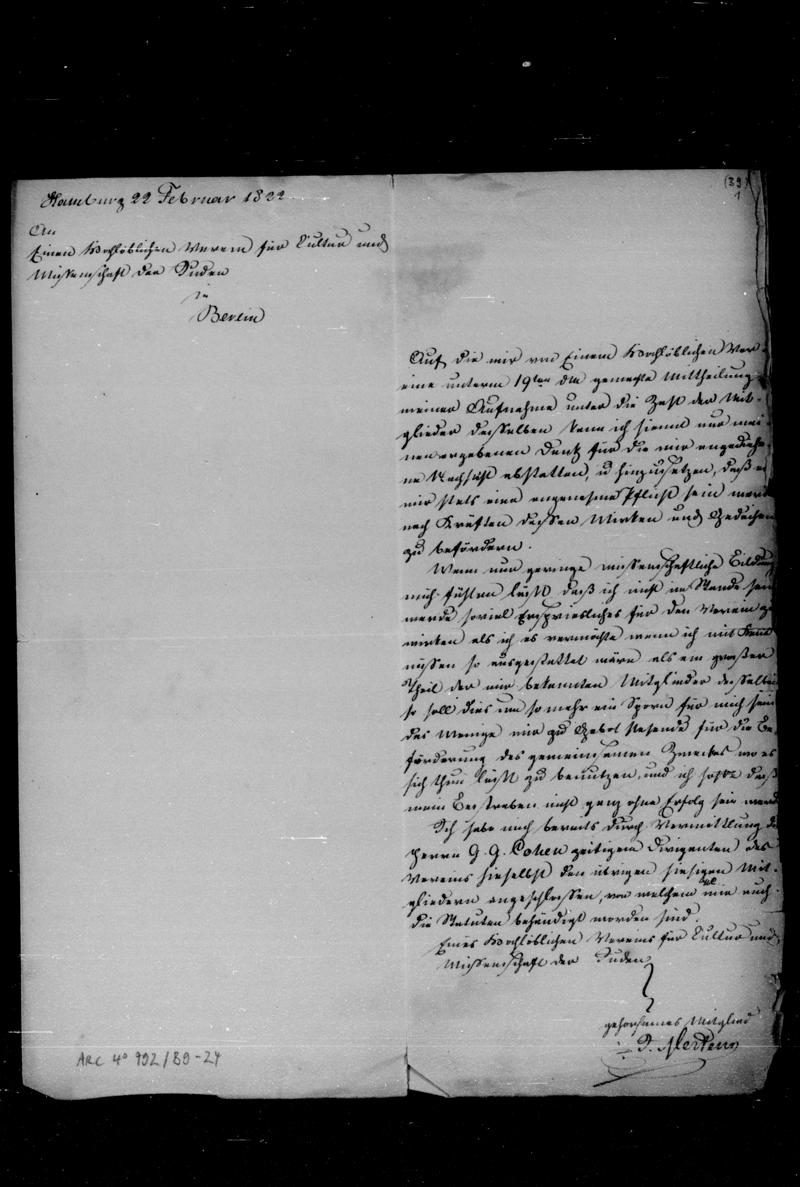 Hamburg 22 Februar 1822
An
Einen Hochlöblichen Verein für Cultur und
Wissenschaft der Juden
in
Berlin
(39)
1
Auf die mir von Einem Hochlöblichen Ver-
eine unterm 19ten dM gemachte Mittheilung
meiner Aufnahme unter die Zahl der Mit-
glieder desselben kann ich hiemit nur mei-
nen ergebenen Dank für die mir angediehe-
ne Nachsicht abstatten, u hinzusetzen, daß es
mir stets eine angenehme Pflicht sein werde
nach Kräften dessen Wirken und Gedeihen
zu befördern.
Wenn nur geringe wissenschaftliche Bildung
mich fühlen läßt daß ich nicht im Stande sein
werde soviel Ersprießliches für den Verein zu
wirken als ich es vermöchte wenn ich mit Kennt
nissen so ausgestattet wäre als ein großer
Theil der mir bekannten Mitglieder desselben
so soll dies um so mehr ein Sporn für mich sein
das Wenige mir zu Gebot stehende für die Be
förderung des gemeinsamen Zweckes wo es
sich thun läßt zu benutzen, und ich hoffe daß
mein Bestreben nicht ganz ohne Erfolg sein werde
Ich habe mich bereits durch Vermittlung des
Herrn G. G. Cohen zeitigem Dirigenten des
Vereins hieselbst den übrigen hiesigen Mit-
gliedern angeschlossen, von welchem mir auch
die Statuten behändigt worden sind.
Eines Hochlöblichen Vereins für Cultur und
Wissenschaft der Juden
gehorsames Mitglied
J. Mertens
ARC 4° 992/B9-24